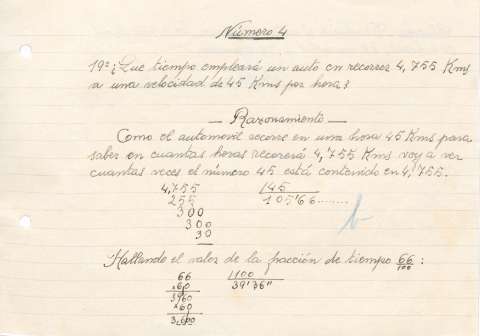 Número 4
19º ¿Que tiempo empleará un auto en recorrer 4,755 Kms
a una velocidad de 45 Kms por hora?
— Razonamiento —
Como el automovil recorre en una hora 45 Kms para
saber en cuantas horas recorerá 4,755 Kms voy a ver
cuantas veces el número 45 está contenido en 4,755.
4,755 45
255 105'66........
300
300
30
Hallando el valor de la fracción de tiempo 66/100 :
66 100
x60 39'36"
3960
x60
3,600